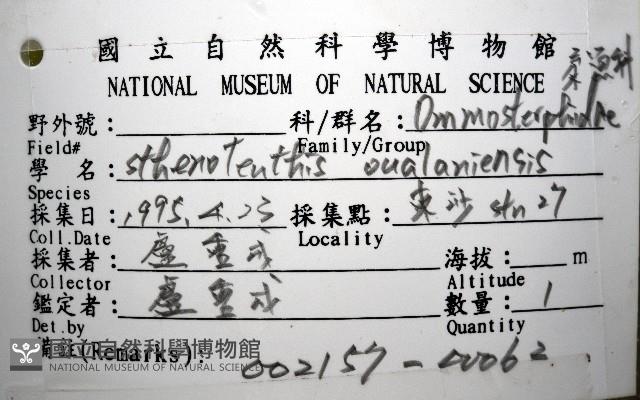 國立自然科學博物館 柔魚科
NATIONAL MUSEUM OF NATURAL SCIENCE
野外號： 科/群名：Ommosterphidae
Field# Family/Group
學 名：sthenoTeuthis oualaniensis
Species
採集日：1995.4.23 採集點：東沙 stn 27
Coll.Date Locality
採集者：盧重成 海拔： m
Collector Altitude
鑑定者：盧重成 數量：1
Det.by Quantity
(Remarks): 002157-
國立自然科學博物館
NATIONAL MUSEUM OF NATURAL SCIENCE